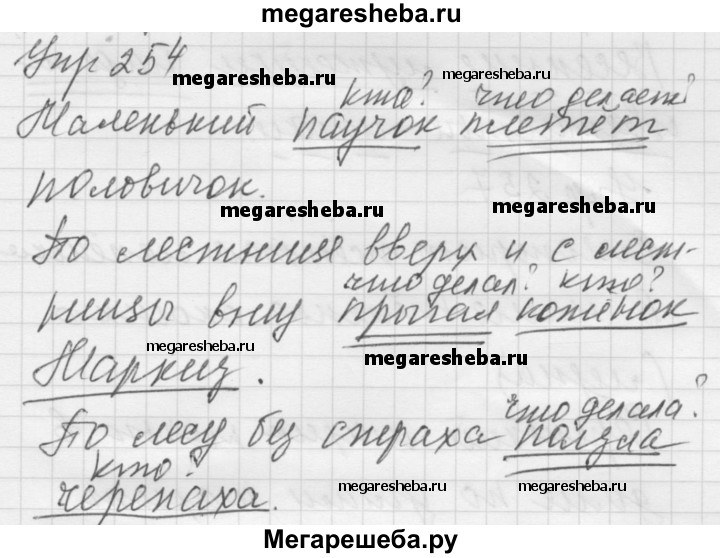 megaresheba.ru
Упр 254
megaresheba.ru
megaresheba.ru
кто? что делает?
Маленький паучок плетёт
половичок.
megaresheba.ru
megaresheba.ru
По лестнице вверх и с лест-
что делал? кто?
ницы вниз прыгал котёнок
megaresheba.ru
megaresheba.ru
Маркиз.
что делала?
По лесу без страха ползла
кто?
megaresheba.ru
megaresheba.ru
черепаха.
Мегарешеба.ру